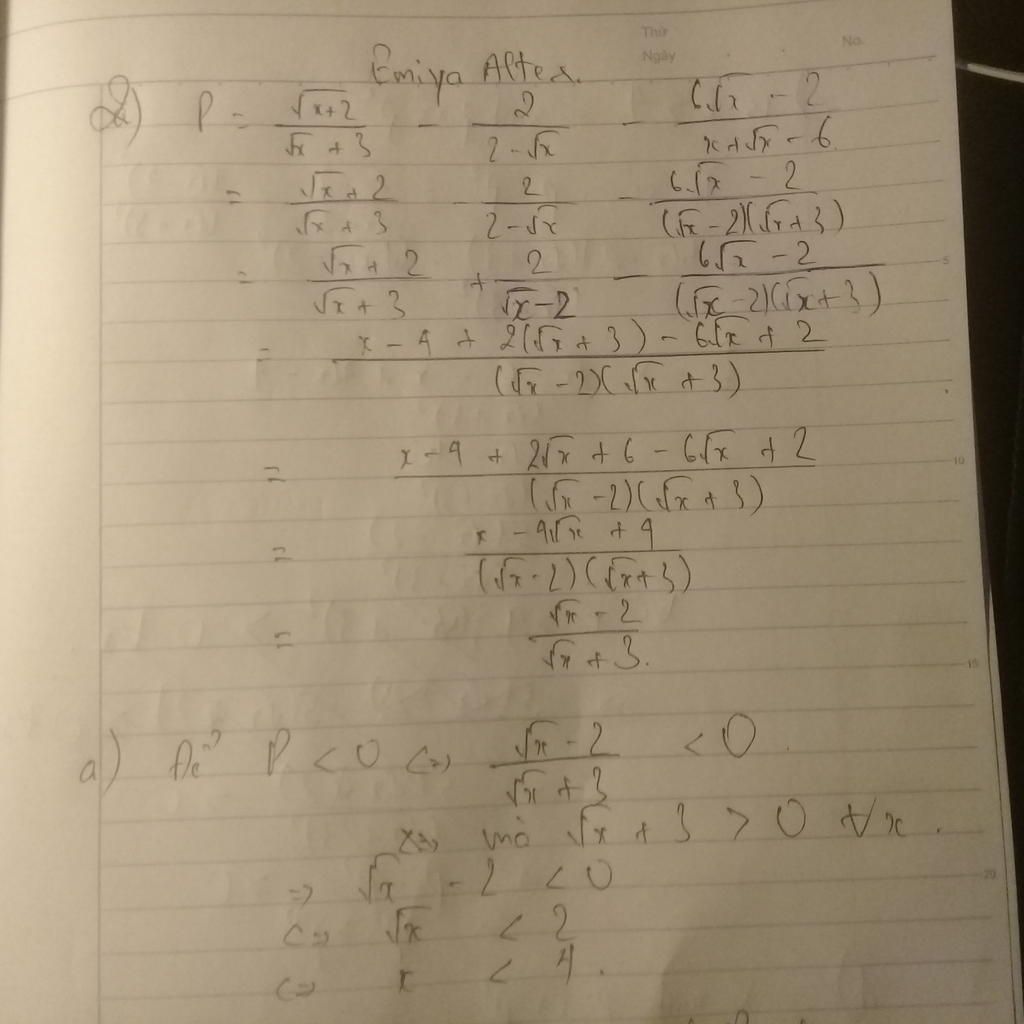 Thứ
Ngày
No.
Emiya Alter.
2) P = \frac{\sqrt{x+2}}{\sqrt{x}+3} - \frac{2}{2-\sqrt{x}} - \frac{6\sqrt{x}-2}{x+\sqrt{x}-6}
= \frac{\sqrt{x}+2}{\sqrt{x}+3} - \frac{2}{2-\sqrt{x}} - \frac{6\sqrt{x}-2}{(\sqrt{x}-2)(\sqrt{x}+3)}
= \frac{\sqrt{x}+2}{\sqrt{x}+3} + \frac{2}{\sqrt{x}-2} - \frac{6\sqrt{x}-2}{(\sqrt{x}-2)(\sqrt{x}+3)}
5
= \frac{x-4+2(\sqrt{x}+3)-6\sqrt{x}+2}{(\sqrt{x}-2)(\sqrt{x}+3)}
= \frac{x-4+2\sqrt{x}+6-6\sqrt{x}+2}{(\sqrt{x}-2)(\sqrt{x}+3)}
10
= \frac{x-4\sqrt{x}+4}{(\sqrt{x}-2)(\sqrt{x}+3)}
= \frac{\sqrt{x}-2}{\sqrt{x}+3}.
15
a) Để P < 0 <=> \frac{\sqrt{x}-2}{\sqrt{x}+3} < 0.
mà \sqrt{x}+3 > 0 ∀x.
=> \sqrt{x} - 2 < 0
20
<=> \sqrt{x} < 2
<=> x < 4.